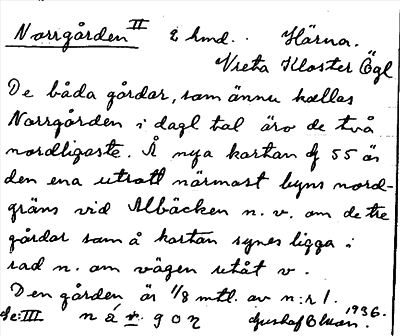 Norrgården II 2 hmd. Härna.
Vreta Kloster Ögl
De båda gårdar, som ännu kallas
Norrgården i dagl tal äro de två
nordligaste. Å nya kartan af 55 är
den ena utsatt närmast byns nord-
gräns vid Albäcken n. v. om de tre
gårdar som å kartan synes ligga i
rad n. om vägen utåt v.
Den gården är 1/8 mtl. av n:r 1.
1936.
Se: III Gustaf Olsson.